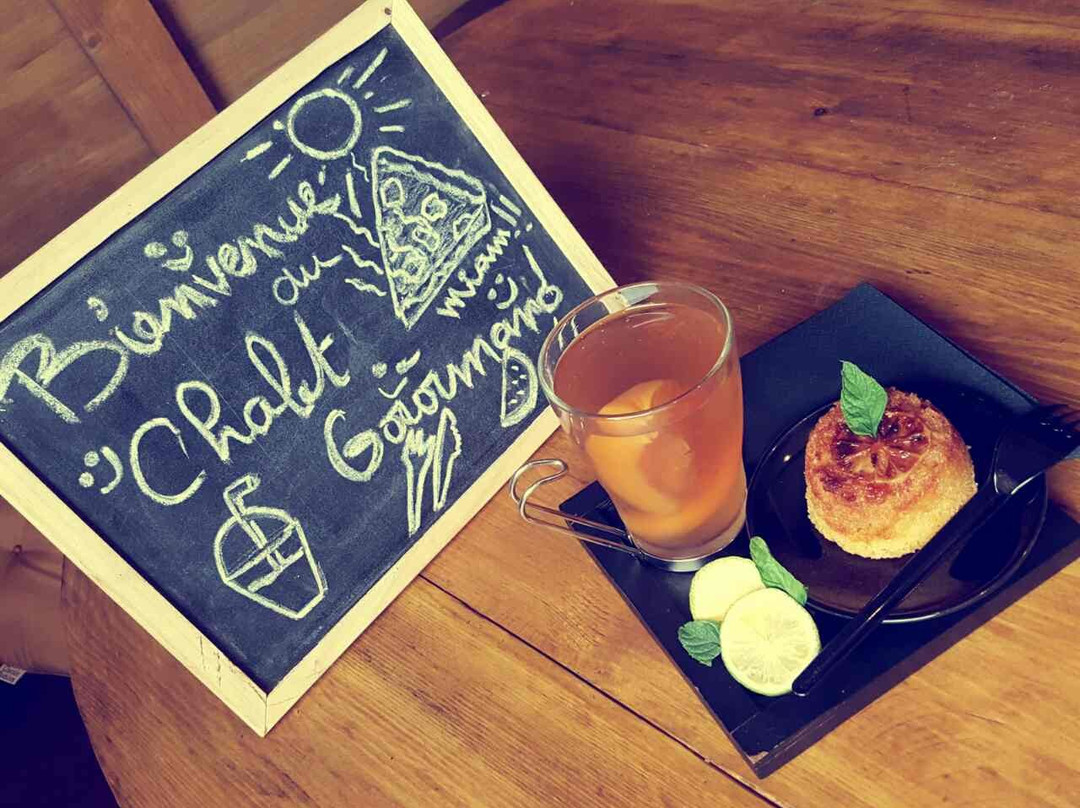 Bienvenue
au
miam!!
Chalet
Gourmand